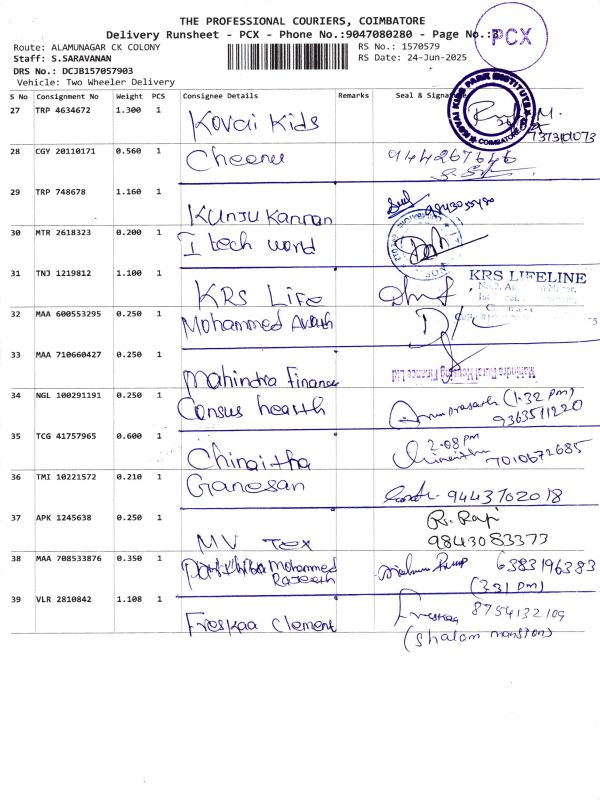 THE PROFESSIONAL COURIERS, COIMBATORE
Delivery Runsheet - PCX - Phone No.:9047080280 - Page No.:
PCX
Route: ALAMUNAGAR CK COLONY
RS No.: 1570579
Staff: S.SARAVANAN
RS Date: 24-Jun-2025
DRS No.: DCJB157057903
Vehicle: Two Wheeler Delivery
S No Consignment No Weight PCS Consignee Details Remarks Seal &
27 TRP 4634672 1.300 1 Kovai Kids
7373101073
28 CGY 20110171 0.560 1 Cheenu
29 TRP 748678 1.160 1 Kunju Kannan
30 MTR 2618323 0.200 1 I tech world
31 TNJ 1219812 1.100 1 KRS Life
KRS LIFELINE
32 MAA 600553295 0.250 1 Mohammed
33 MAA 710660427 0.250 1 Mahindra Finance
Mahindra Rural Housing Finance Ltd
34 NGL 100291191 0.250 1 Consus hearth (1.32 pm)
9363511220
35 TCG 41757965 0.600 1 Chinaitha 2.08 pm
7010672685
36 TMI 10221572 0.210 1 Ganesan 9443702018
37 APK 1245638 0.250 1 MV Tex R. Raji
9843083373
38 MAA 708533876 0.350 1 Mohammed 6383196383
Rajeeth (3.31 pm)
39 VLR 2810842 1.108 1 Freskaa Clement Freskaa 8754132109
(Shalom mansion)